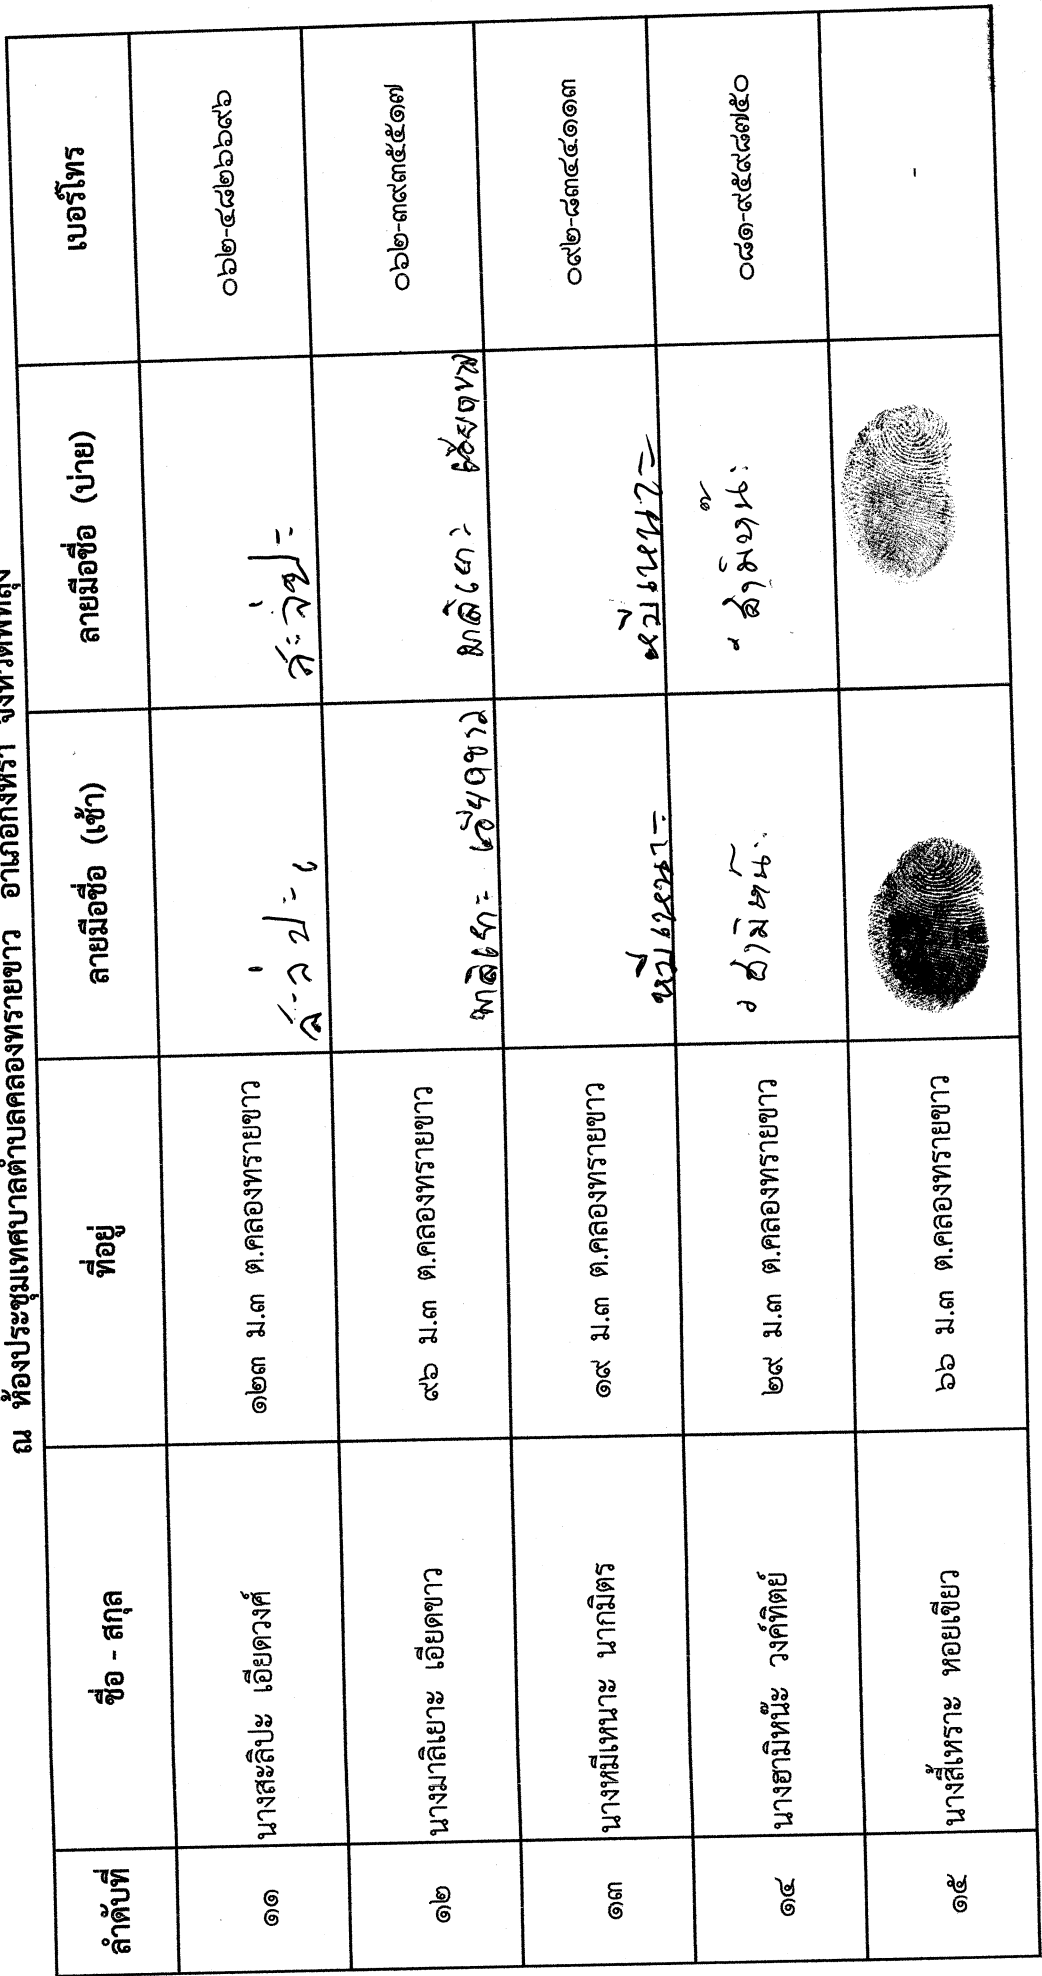 ณ ห้องประชุมเทศบาลตำบลคลองทรายขาว อำเภอกงหรา จังหวัดพัทลุง
ลำดับที่ ชื่อ - สกุล ที่อยู่ ลายมือชื่อ (เช้า) ลายมือชื่อ (บ่าย) เบอร์โทร
๑๑ นางสะลิปะ เอียดวงศ์ ๑๒๓ ม.๓ ต.คลองทรายขาว ๐๖๒-๔๘๒๖๖๙๖
๑๒ นางมาลิเยาะ เอียดขาว ๙๖ ม.๓ ต.คลองทรายขาว มาลิเยาะ เอียดขาว มาลิเยาะ เอียดขาว ๐๖๒-๓๙๓๕๕๑๗
๑๓ นางหมีเหนาะ นากมิตร ๑๙ ม.๓ ต.คลองทรายขาว หมีเหนาะ หมีเหนาะ ๐๙๒-๘๓๔๔๑๑๓
๑๔ นางฮามิหน๊ะ วงค์ทิตย์ ๒๙ ม.๓ ต.คลองทรายขาว ๐๘๑-๙๕๙๘๗๕๐
๑๕ นางสี้เหราะ หอยเขียว ๖๖ ม.๓ ต.คลองทรายขาว -